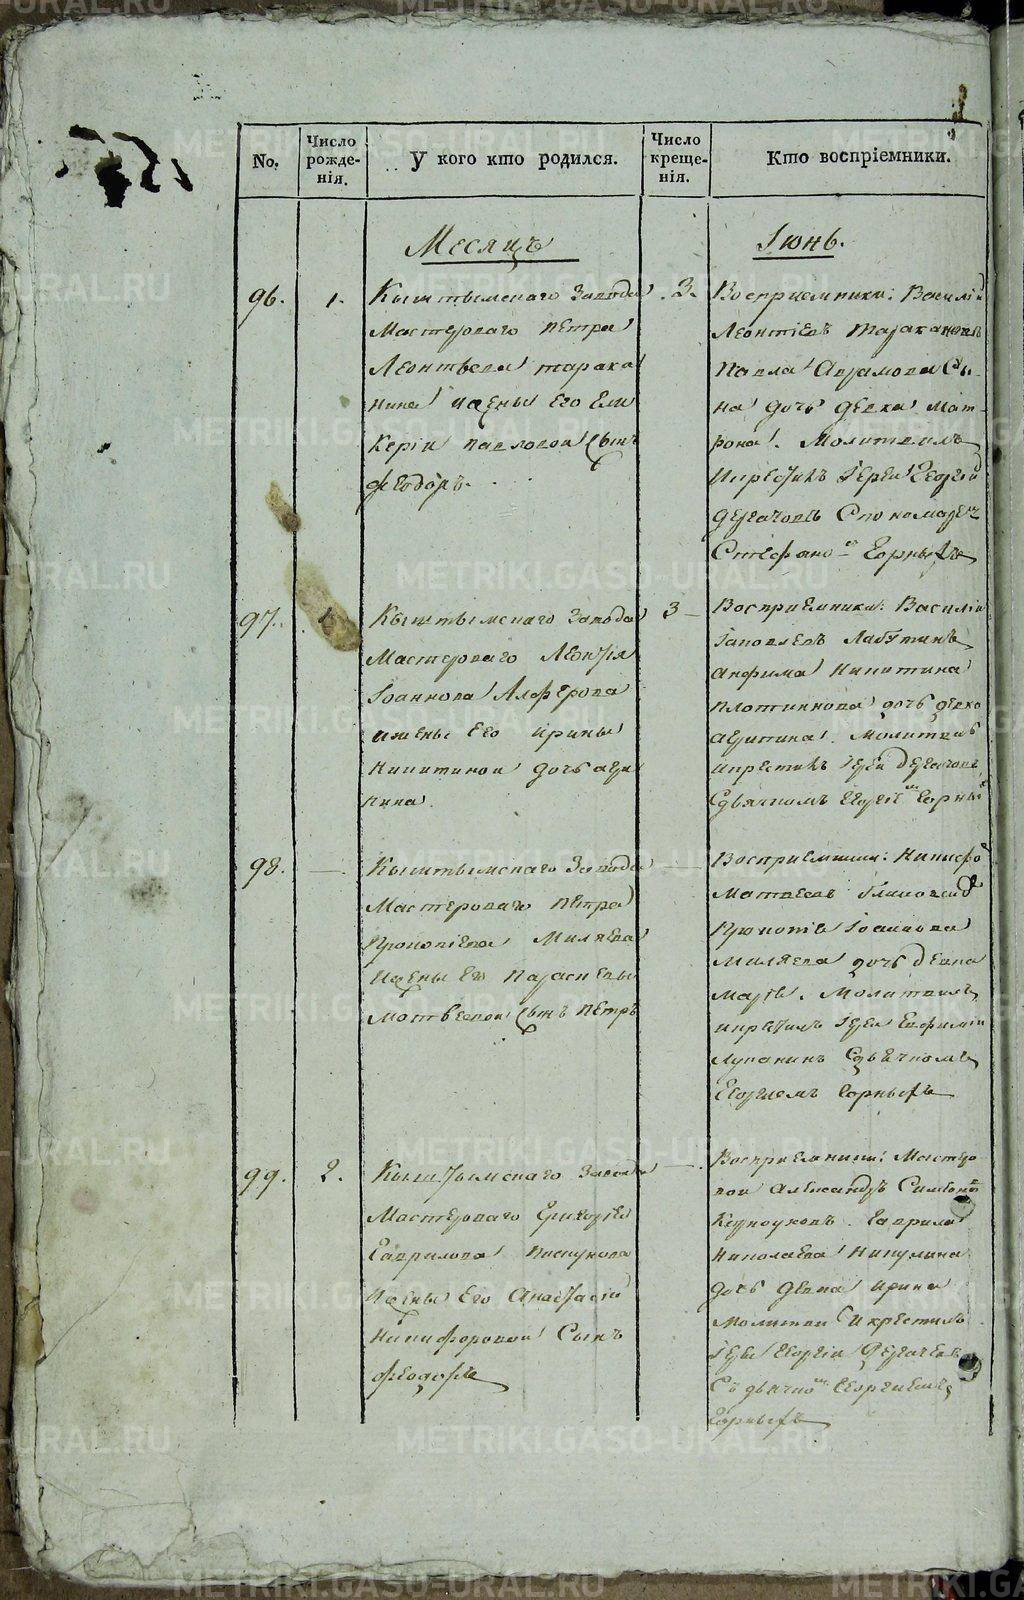 No.
Число рожде-нія.
У кого кто родился.
Число креще-нія.
Кто воспріемники.
Месяцъ
Іюнь.
96.
1.
Кыштымскаго Завода
Мастероваго Петра
Леонтьева Тарака
нина ижены Его Гли
керіи Павловой Сынъ
Феодоръ.
3.
Восприемники: Василій
Леонтіевъ Таракановъ
Павла Аврамова Сы-
на дочь девка Мат-
рона. Молитвилъ
Икрестилъ Іерей Георгій
Дерягачовъ Спономаремъ
Стефаномъ Горныхъ
97.
1.
Кыштымскаго Завода
Мастероваго Леонтія
Іоаннова Алферова
ижены Его Ирины
Никитиной дочь агри
пина.
3
Восприемники: Василій
Іаковлевъ Лабутинъ
Анфима Никитина
Плотникова дочь девка
агрипина. Молитвилъ
икрестилъ Іерей
Сдьячкомъ Георгіемъ Горныхъ
98.
Кыштымскаго Завода
Мастероваго Петра
Прокопіева Миляева
Ижены Его Параскевы
Матвеевой Сынъ Петръ
Восприемники: Никифоръ
Матвеевъ
Прокопіе Іоаннова
Миляева дочь девка
Марія. Молитвилъ
икрестилъ Іерей Евфимій
Лукакинъ Сдьячкомъ
Георгіемъ Горныхъ
99.
2.
Кыштымскаго Завода
Мастероваго Григорія
Гаврилова Пискунова
Ижены Его Анастасіи
Никифоровой Сынъ
Феодоръ
Восприемники: Мастеро
вой Александръ Симеоновъ
Гаврила
Николаева Никулина
дочь девка Ирина
Молитви Икрестилъ
Іерей Георгій
Съ дьячкомъ Георгіемъ
Горныхъ
METRIKI.GASO-URAL.RU